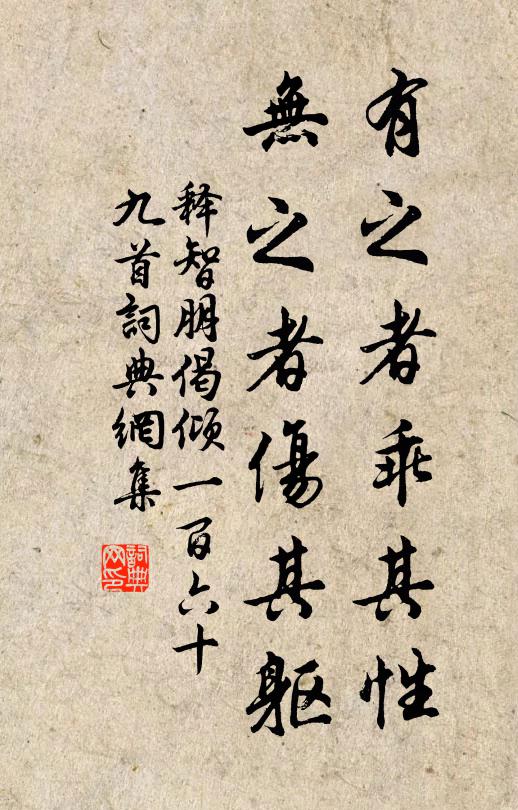 有之者乖其性
無之者傷其軀
释智朋偈傾一百六十
九首詞典網集
詞典網印